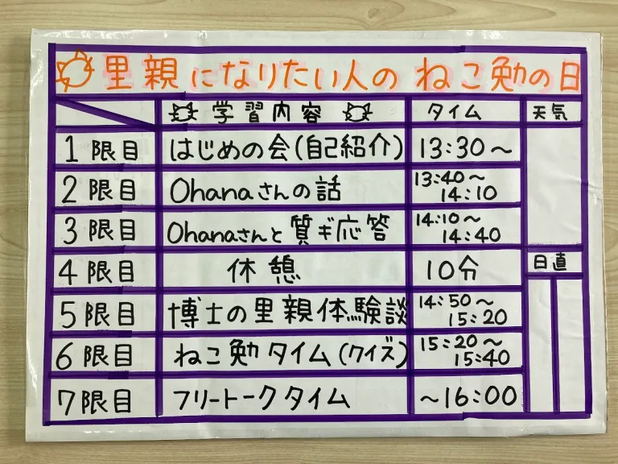 里親になりたい人の ねこ勉の日
学習内容 タイム 天気
1限目 はじめの会(自己紹介) 13:30~
2限目 Ohanaさんの話 13:40~14:10
3限目 Ohanaさんと質ギ応答 14:10~14:40
4限目 休憩 10分 日直
5限目 博士の里親体験談 14:50~15:20
6限目 ねこ勉タイム(クイズ) 15:20~15:40
7限目 フリートークタイム ~16:00